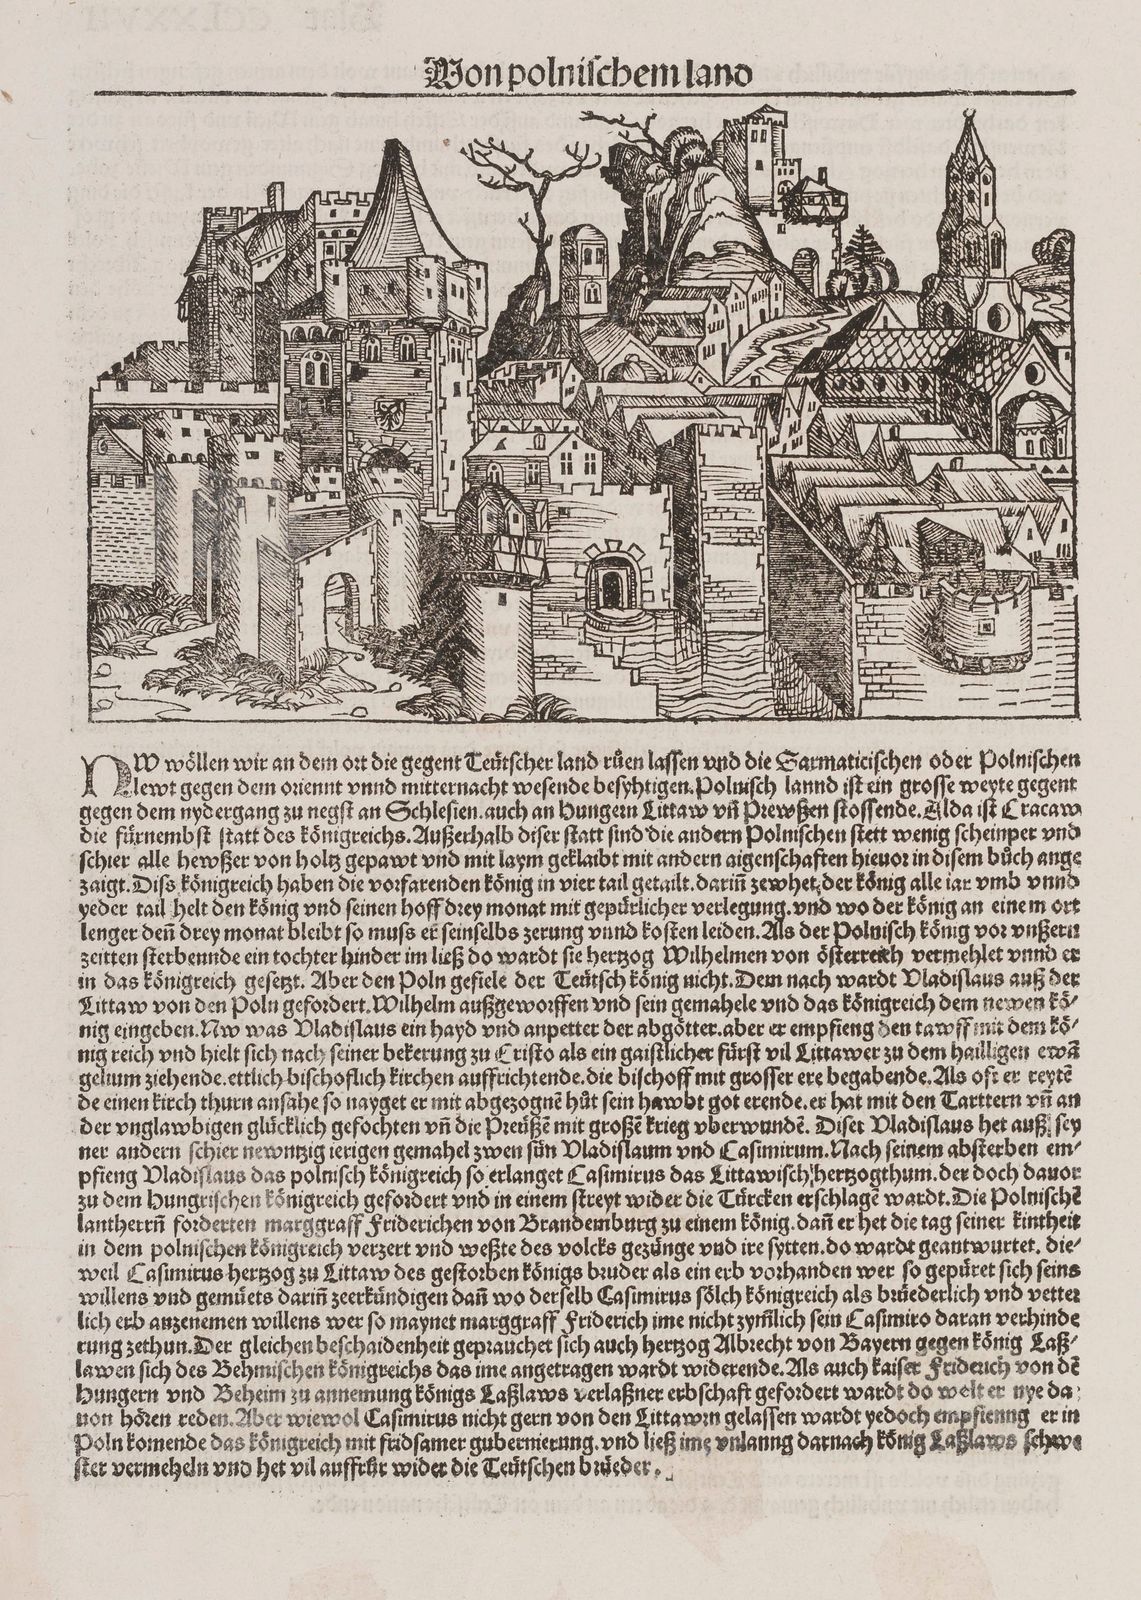 Von polnischem land
NW wöllen wir an dem ort die gegent Teütscher land růen lassen vnd die Sarmaticischen oder Polnischen
lewt gegen dem orient vnnd mitternacht wesende besyhtigen. Polnisch lannd ist ein grosse weyte gegent
gegen dem nydergang zu negst an Schlesien. auch an Hungern Littaw vñ Prewßen stossende. Alda ist Cracaw
die fürnembst statt des königreichs. Außerhalb diser statt sind die andern Polnischen stett wenig scheinper vnd
schier alle hewßer von holtz gepawt vnd mit laym geklaibt mit andern aigenschaften hieuor in disem bůch ange
zaigt. Diss königreich haben die vorfarenden könig in vier tail getailt. dariñ zewhet der könig alle iar vmb vnnd
yeder tail helt den könig vnd seinen hoff drey monat mit gepürlicher verlegung. vnd wo der könig an einem ort
lenger deñ drey monat bleibt so muss er seinselbs zerung vnnd kosten leiden. Als der Polnisch könig vor vnßern
zeitten sterbennde ein tochter hinder im ließ do wardt sie hertzog Wilhelmen von österreich vermehlet vnnd er
in das königreich gesetzt. Aber den Poln gefiele der Teütsch könig nicht. Dem nach wardt Vladislaus auß der
Littaw von den Poln gefordert. Wilhelm außgeworffen vnd sein gemahele vnd das königreich dem newen kö-
nig eingeben. Nw was Vladislaus ein hayd vnd anpetter der abgötter. aber er empfieng den tawff mit dem kö-
nig reich vnd hielt sich nach seiner bekerung zu Cristo als ein gaistlicher fürst vil Littawer zu dem hailligen ewã
gelium ziehende. ettlich bischoflich kirchen auffrichtende. die bischoff mit grosser ere begabende. Als oft er reytẽ
de einen kirch thurn ansahe so nayget er mit abgezognẽ hůt sein hawbt got erende. er hat mit den Tarttern vñ an
der vnglawbigen glücklich gefochten vñ die Preüßẽ mit großẽ krieg vberwundẽ. Diser Vladislaus het auß sey
ner andern schier newntzig ierigen gemahel zwen sün Vladislaum vnd Casimirum. Nach seinem absterben em-
pfieng Vladislaus das polnisch königreich so erlanget Casimirus das Littawisch hertzogthum. der doch dauor
zu dem Hungrischen königreich gefordert vnd in einem streyt wider die Türcken erschlagẽ wardt. Die Polnischẽ
lantherrñ forderten marggraff Friderichen von Brandemburg zu einem könig. dañ er het die tag seiner kintheit
in dem polnischen königreich verzert vnd weßte des volcks gezünge vnd ire sytten. do wardt geantwurtet. die-
weil Casimirus hertzog zu Littaw des gestorben königs bruder als ein erb vorhanden wer so gepüret sich seins
willens vnd gemüets dariñ zeerkündigen dañ wo derselb Casimirus sölch königreich als brüederlich vnd vetter
lich erb anzenemen willens wer so maynet marggraff Friderich ime nicht zym̃lich sein Casimiro daran verhinde
rung zethun. Der gleichen bescheidenheit gepraucher sich auch hertzog Albrecht von Bayern gegen könig Laß-
lawen sich des Behmischen königreichs das ime angetragen wardt widerende. Als auch kaiser Friderich von dẽ
Hungern vnd Beheim zu annemung königs Laßlaws verlaßner erbschaft gefordert wardt do wolt er nye da
uon hören reden. Aber wiewol Casimirus nicht gern von den Littawrn gelassen wardt yedoch empfienng er in
Poln komende das königreich mit fridsamer gubernierung. vnd ließ ime vnlanng darnach könig Laßlaws schwe
ster vermeheln vnd het vil auffrůr wider die Teütschen brüeder.